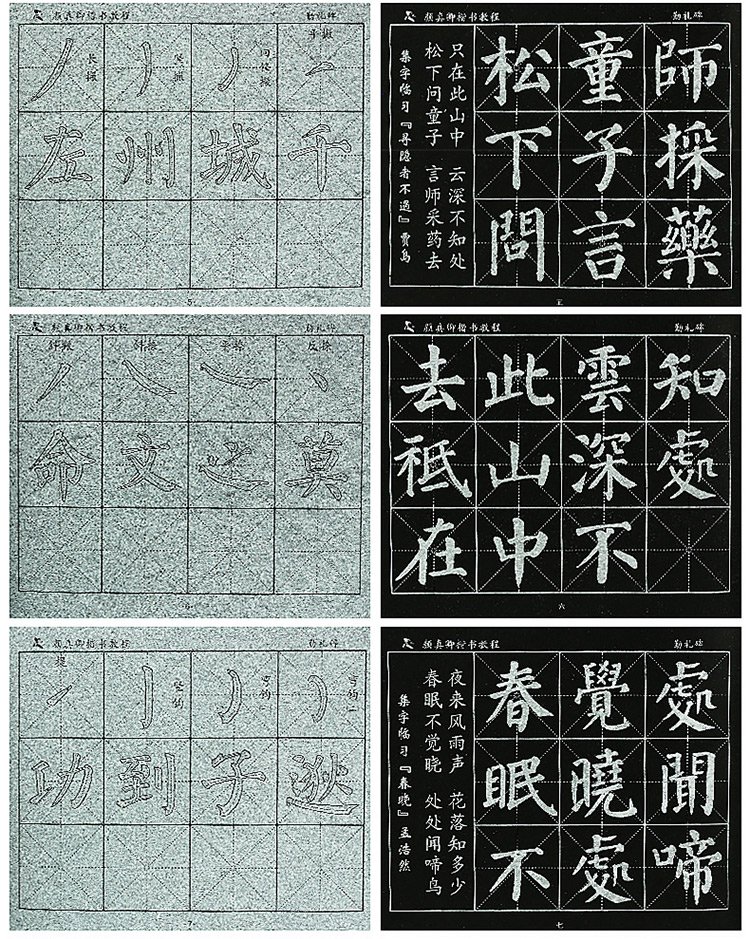 颜真卿楷书教程 勤礼碑
长撇 竖撇 回锋撇 平撇
左 州 城 千
5
颜真卿楷书教程 勤礼碑
集字临习『寻隐者不遇』贾岛
松下问童子 言师采药去
只在此山中 云深不知处
松下問
童子言
師採藥
五
颜真卿楷书教程 勤礼碑
斜撇 斜捺 平捺 反捺
命 文 之 莫
6
颜真卿楷书教程 勤礼碑
去祗在
此山中
雲深不
知處
六
颜真卿楷书教程 勤礼碑
提 竖钩 弯钩
功 到 子 逖
7
颜真卿楷书教程 勤礼碑
集字临习『春晓』孟浩然
春眠不觉晓 处处闻啼鸟
夜来风雨声 花落知多少
春眠不
覺曉處
處聞啼
七